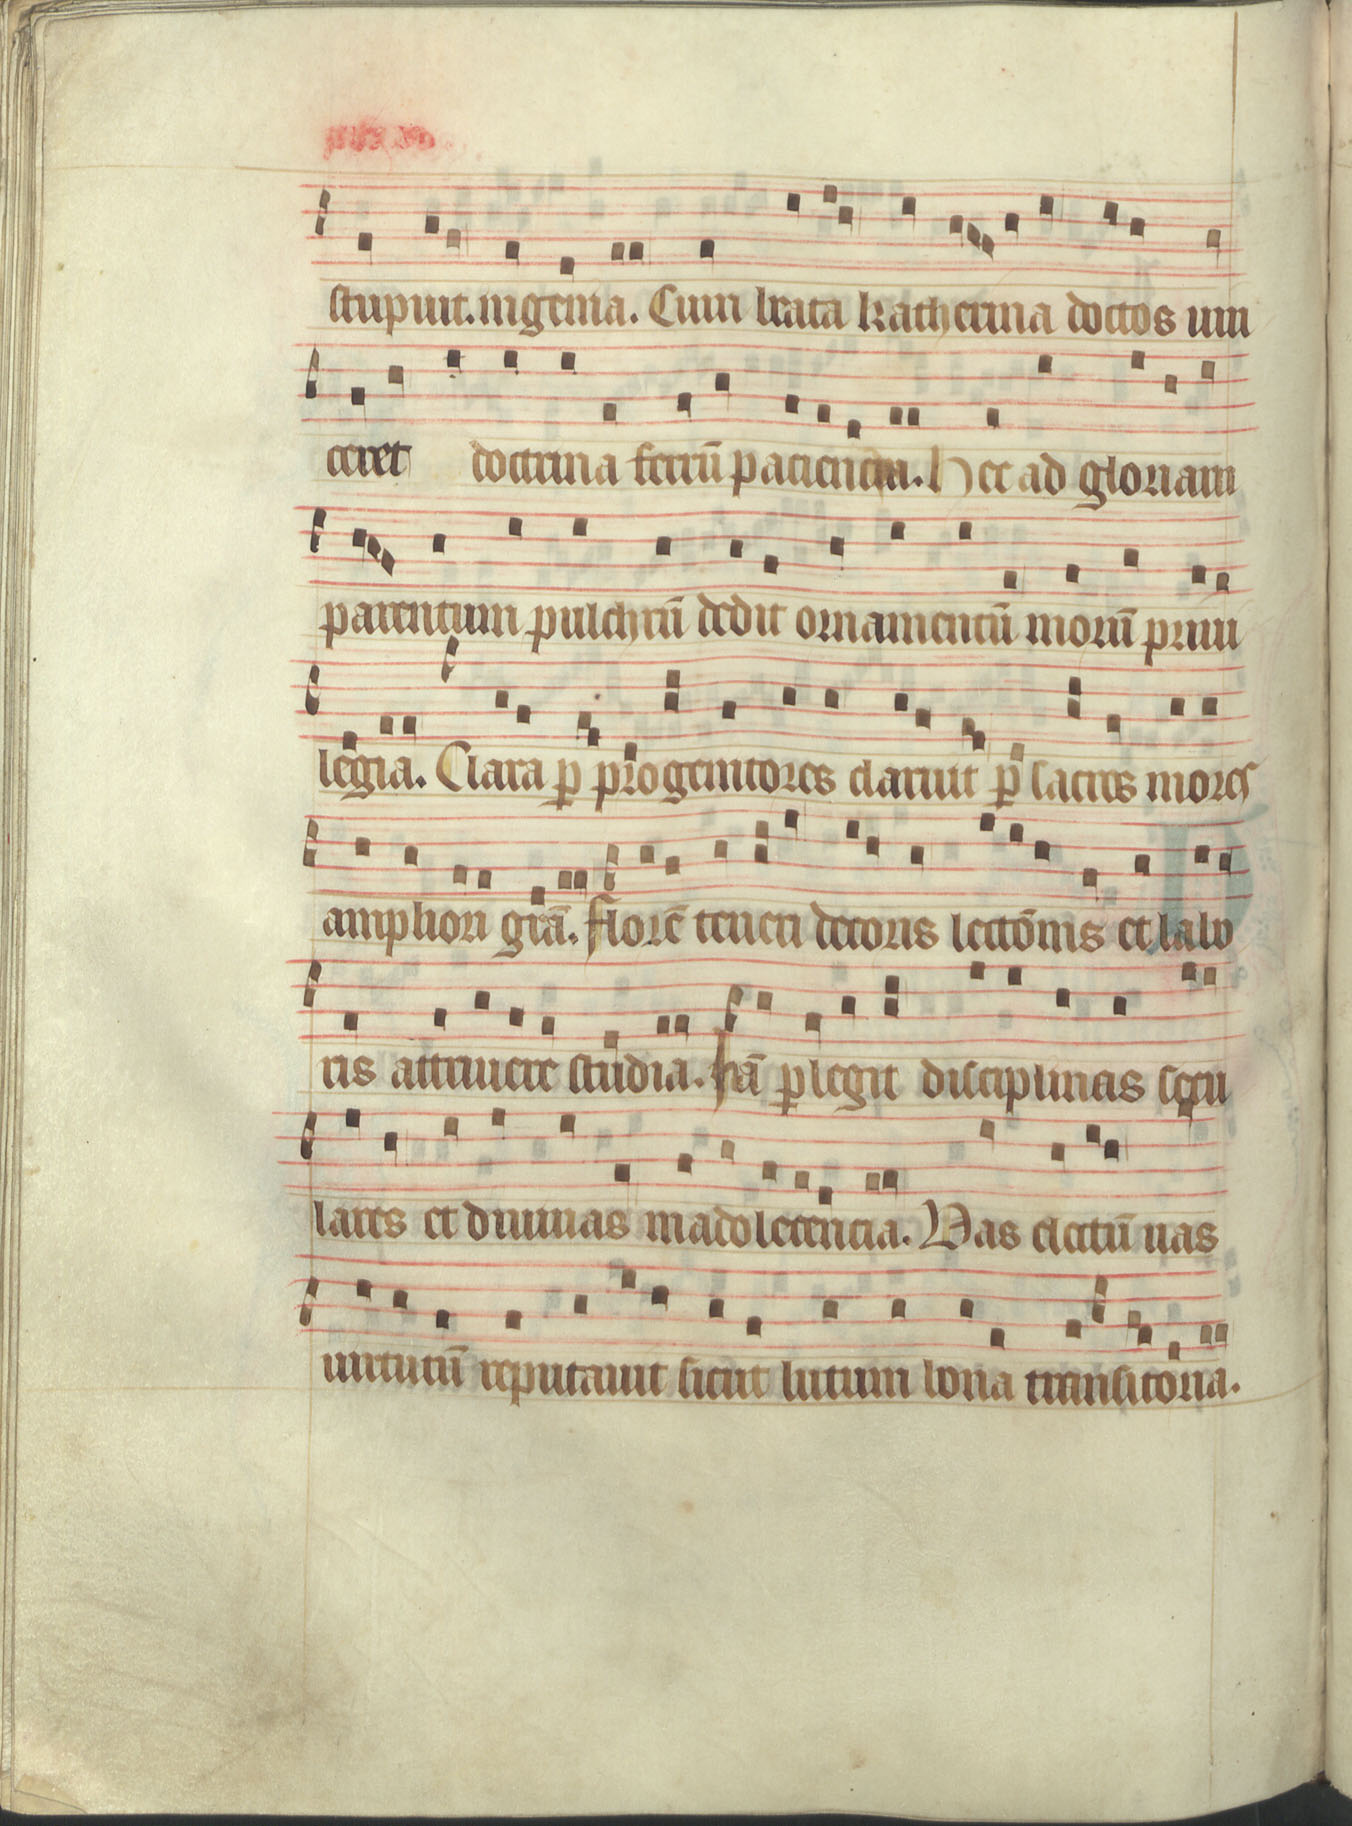 stupuit. ingenia. Cum beata katherina doctos uin
ceret doctrina ferrū paciencia. Hec ad gloriam
parentum pulchrū dedit ornamentū morū priui
legia. Clara ꝑ progenitores claruit ꝑ sacros mores
ampliori grā. Florē teneri decoris lectōnis et labo
ris attriuere studia. Hāc ꝑlegit disciplinas secu
lares et diuinas in adolescencia. Vas electū uas
uirtutū reputauit sicut lutum bona transitoria.